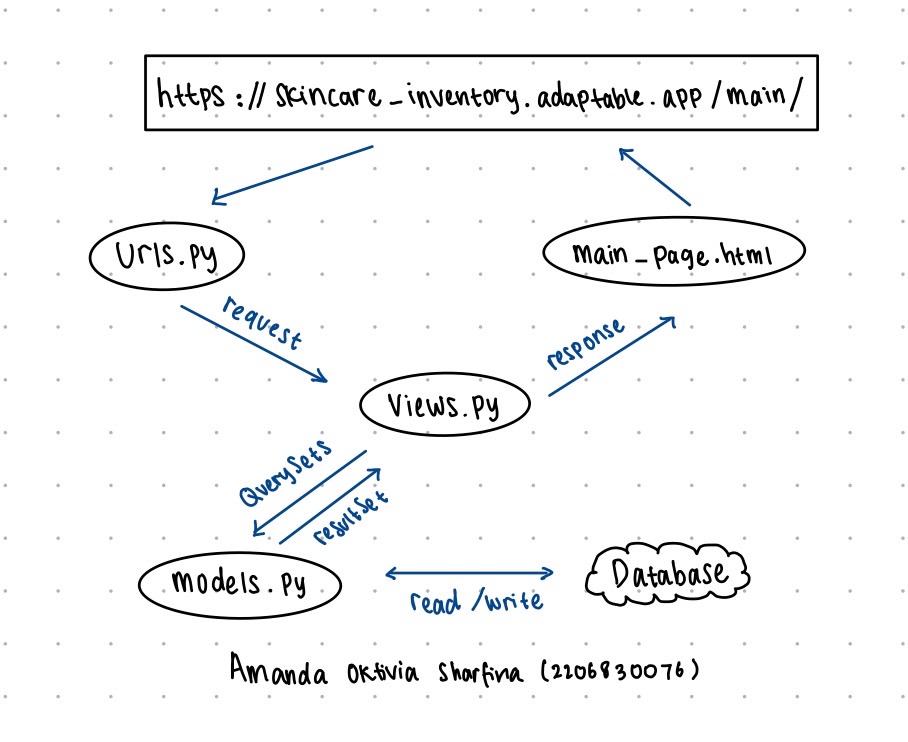 https://skincare_inventory.adaptable.app/main/
Urls.py
main_page.html
request
response
Views.py
QuerySets
resultset
models.py
read/write
Database
Amanda Oktivia Sharfina (2206830076)